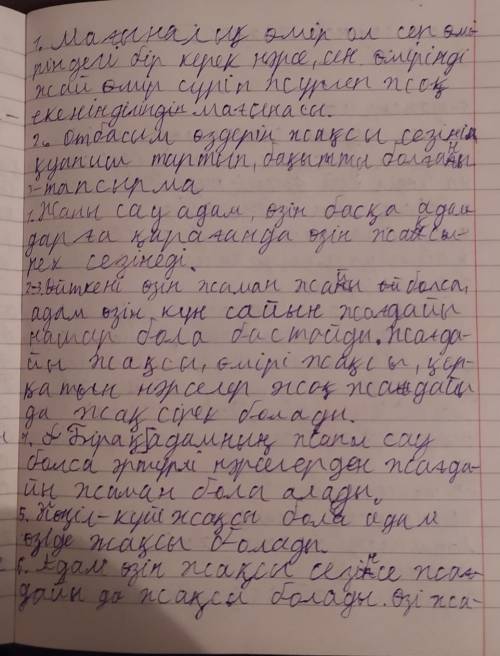 1. Мағыналық өмір ол сен өмі-
ріндегі бір керек нәрсе, сен өміріңді
жай өмір сүріп жүрген жоқ
екеніңділігің мағынасы.
2. Отбасым өздерін жақсы сезініп
қуаныш тартып, бақытты болғаны
2-тапсырма
1. Жаны сау адам, өзін басқа адам
дарға қарағанда өзін жақсы-
рек сезінеді.
2-3. Өйткені өзін жаман жайы ой болса,
адам өзін күн сайын жағдайы
нашар бола бастайды. Жағда-
йы жақсы, өмірі жақсы, қор-
қатын нәрселер жоқ жағдайы
да жақсірек болады.
4. Бірақ адамның жаны сау
болса әртүрлі нәрселерден жағда-
йы жаман бола алады.
5. Көңіл-күй жақсы бола адам
өзіде жақсы болады
6. Адам өзін жақсы сезінсе жағ-
дайы да жақсы болады. Өзі жа-